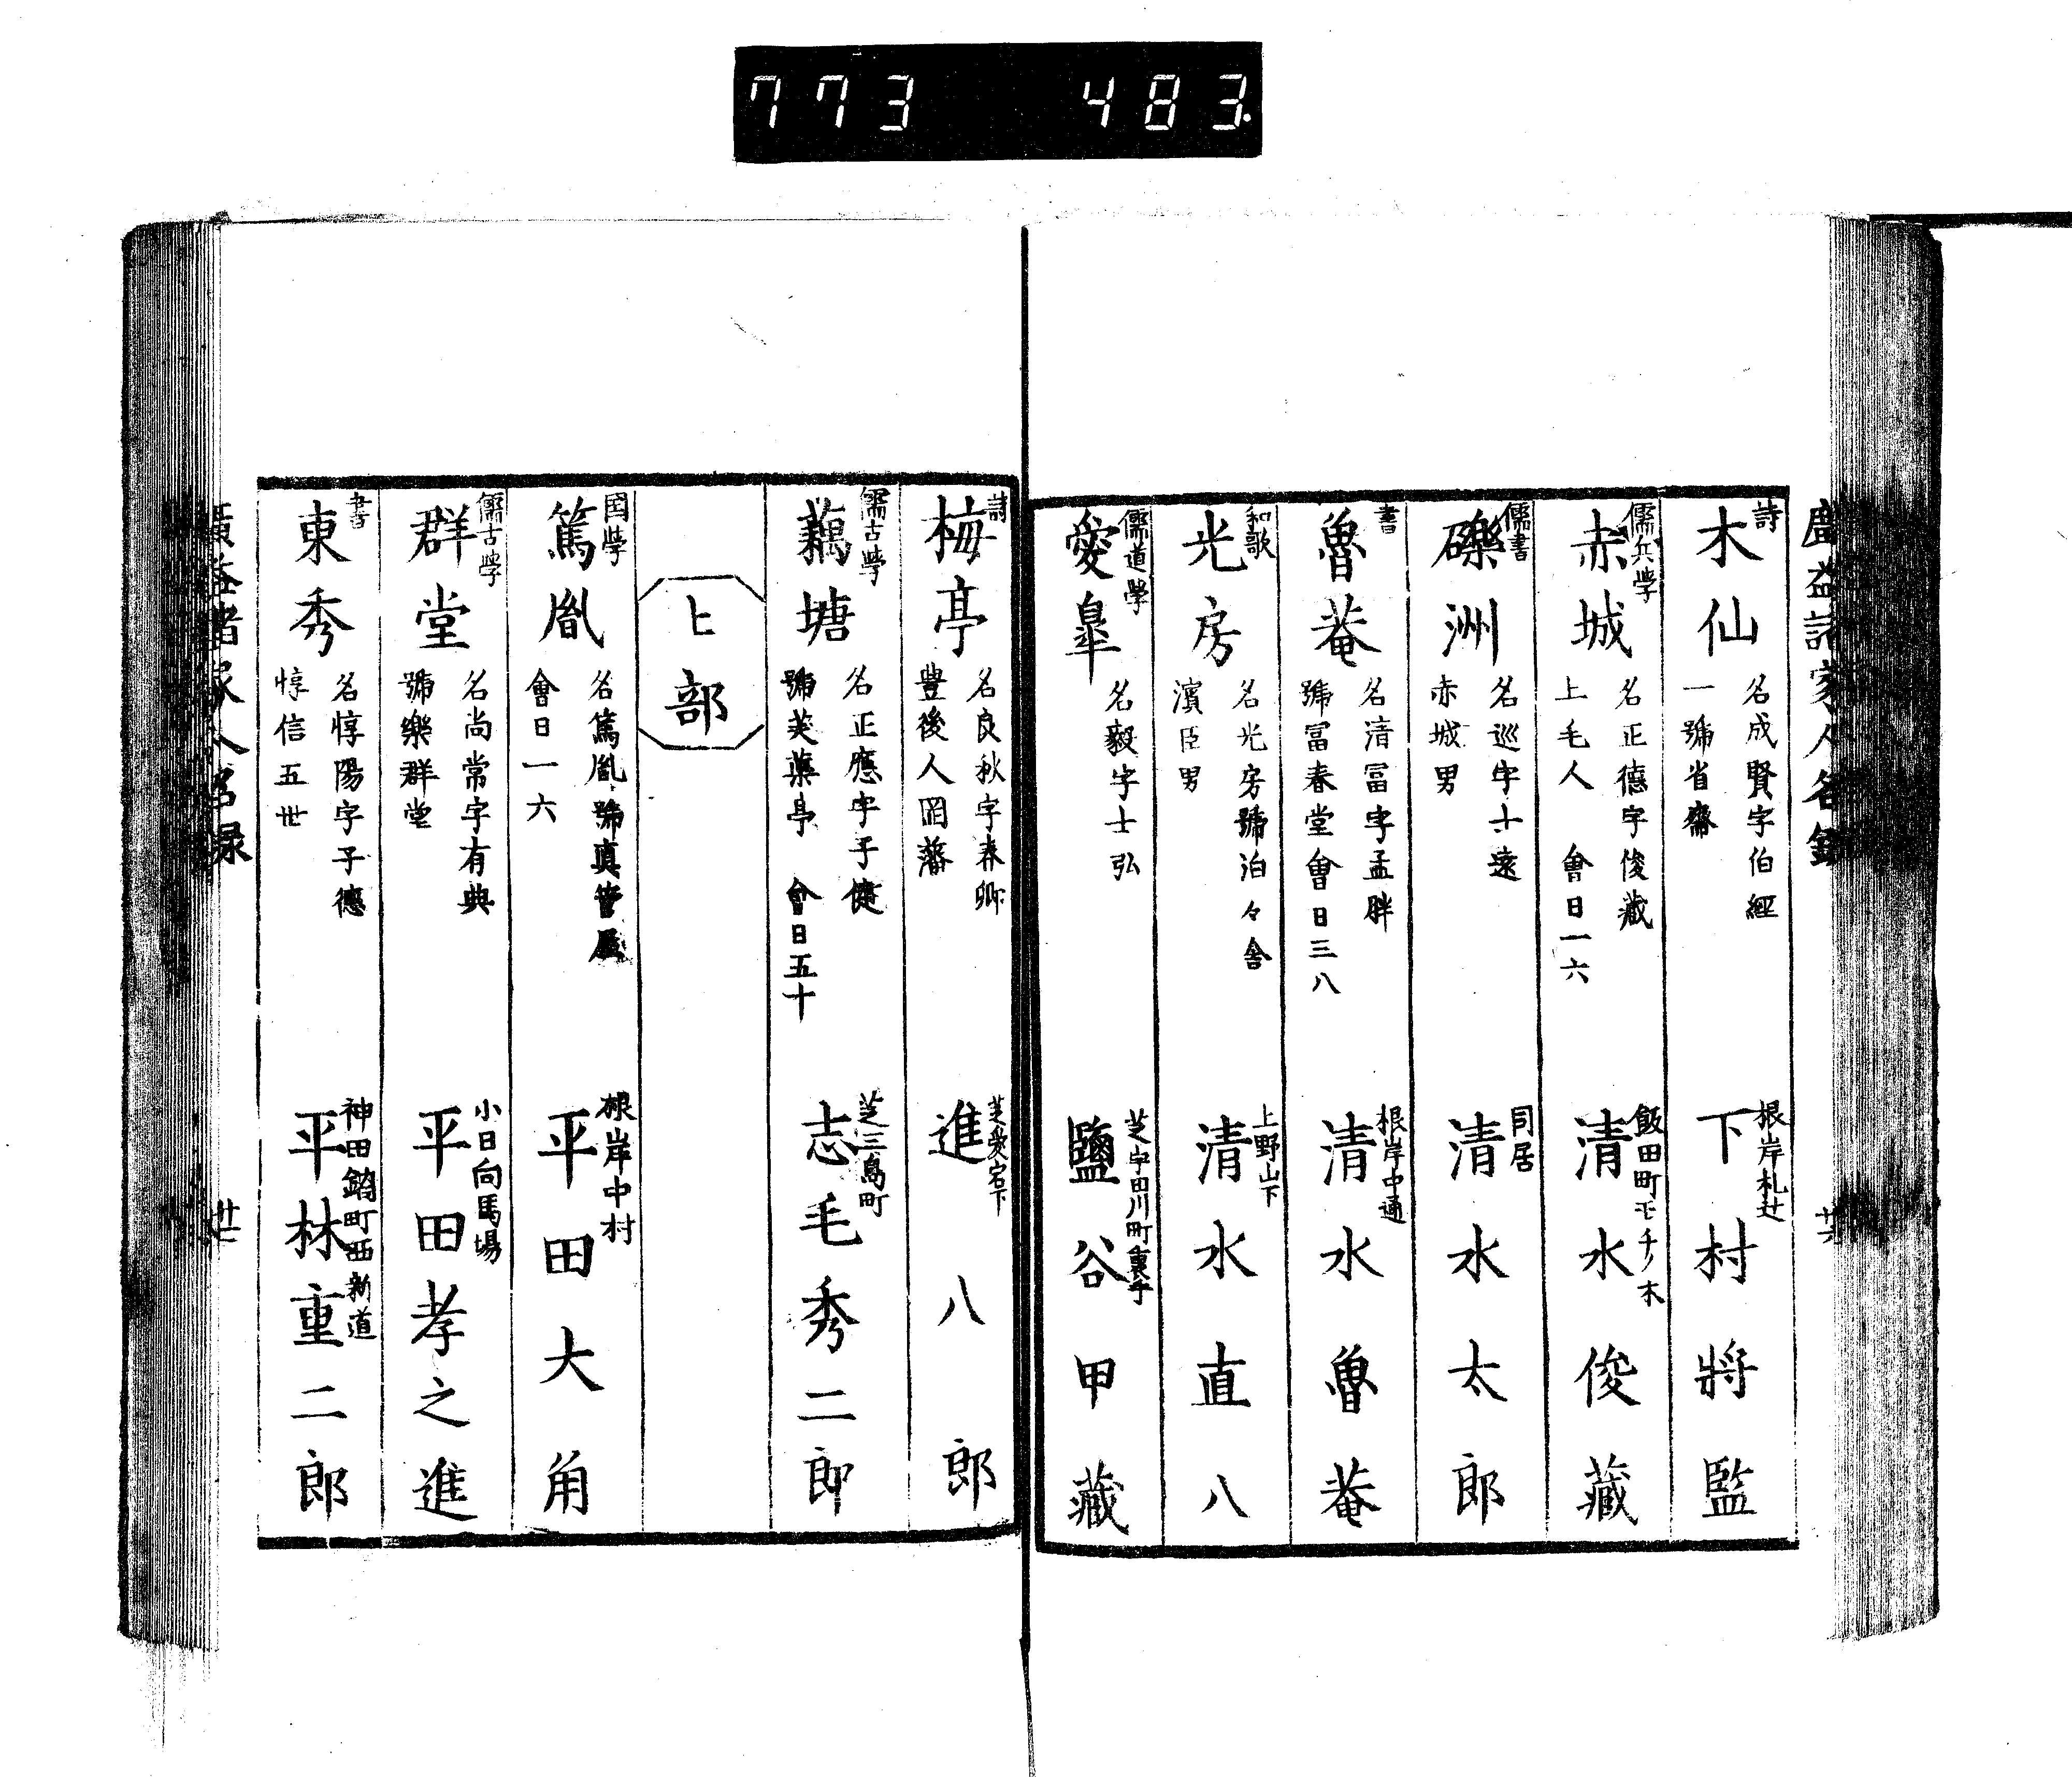 773 483.
廣益諸家人名録
廿六
詩
木仙
名成賢字伯經
一號省齋
根岸札辻
下村將監
儒兵学
赤城
名正德字俊藏
上毛人 會日一六
飯田町モチノ木
清水俊藏
儒書
礫洲
名巡字士遠
赤城男
同居
清水太郎
書
魯菴
名清冨字孟胖
號冨春堂會日三八
根岸中通
清水魯菴
和歌
光房
名光房號泊々舍
濱臣男
上野山下
清水直八
儒道學
愛皐
名毅字士弘
芝宇田川町裏手
鹽谷甲藏
詩
梅亭
名良秋字春卿
豊後人岡藩
芝愛宕下
進八郎
儒古学
藕塘
名正應字子健
號芙蕖亭 會日五十
芝三島町
志毛秀二郎
ヒ部
国学
篤胤
名篤胤號真菅屋
會日一六
根岸中村
平田大角
儒古学
群堂
名尚常字有典
號樂群堂
小日向馬場
平田孝之進
書
東秀
名惇陽字子德
惇信五世
神田鍋町西新道
平林重二郎
廣益諸家人名録
廿七